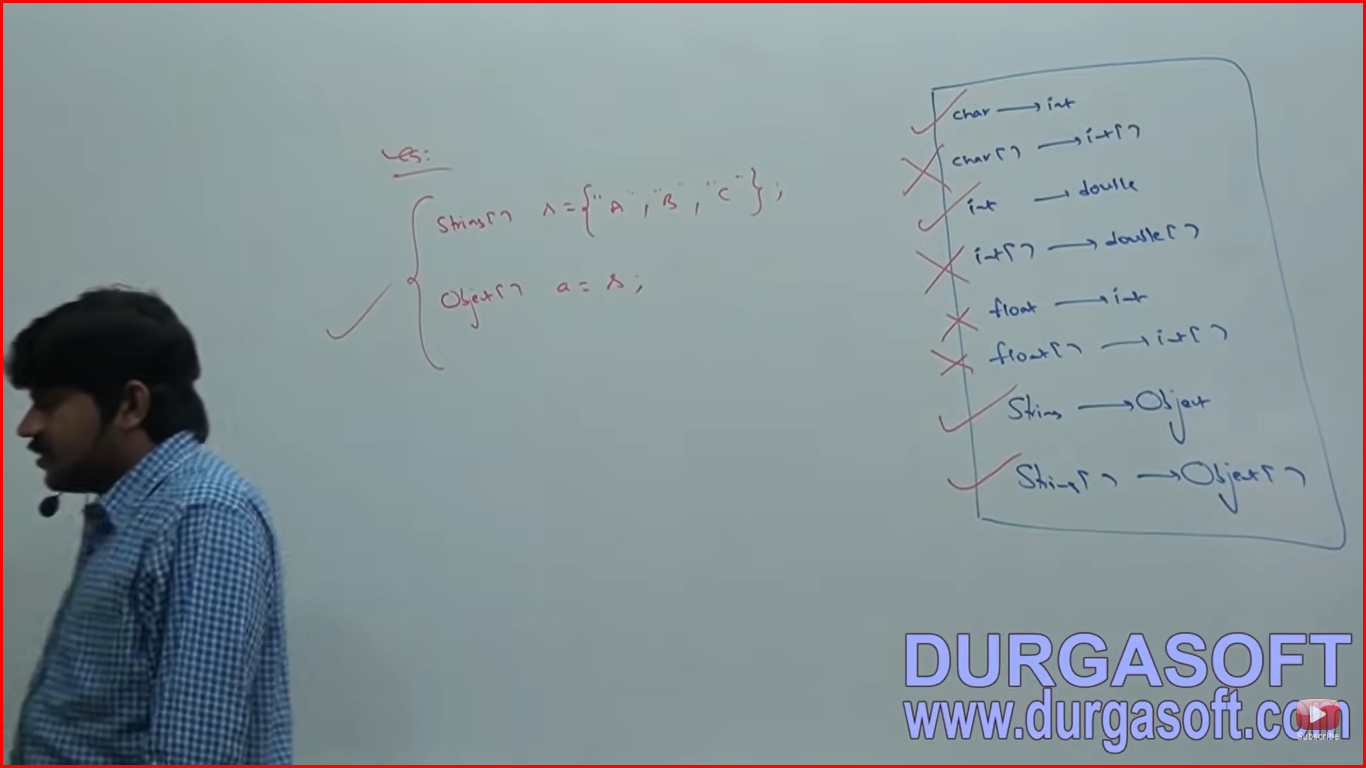 es:
String[] s = {"A", "B", "C"};
Object[] a = s;
char → int
char[] → int[]
int → double
int[] → double[]
float → int
float[] → int[]
String → Object
String[] → Object[]
DURGASOFT
www.durgasoft.com
Subscribe